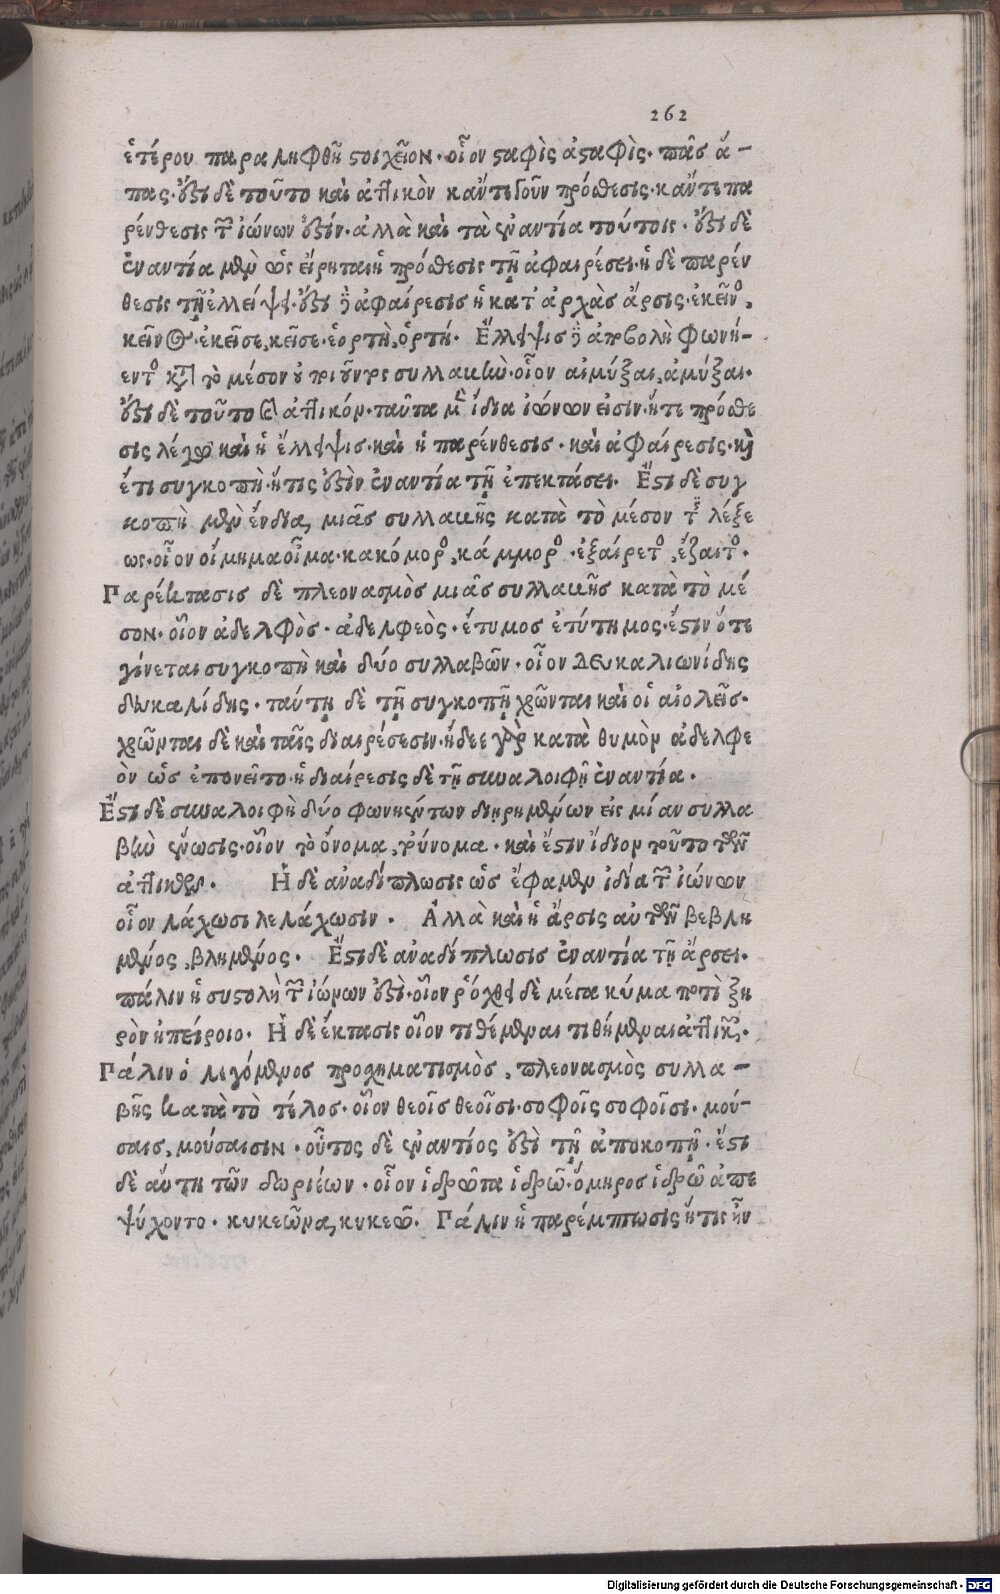 262
ἑτέρου παραληφθῇ στοιχεῖον· οἷον σαφὶς ἀσαφὶς· πᾶσ ἅ-
πας· ἔστι δὲ τοῦτο καὶ ἀττικὸν καὔτε πρόσθεσις· καὔτε πα
ρένθεσις τῶν ἰώνων ἐστίν· ἀλλὰ καὶ τὰ ἐναντία τούτοις· ἔστι δὲ
ἐναντία μὲν ὡς εἴρηται ἡ πρόσθεσις τῇ ἀφαιρέσει· ἡ δὲ παρέν
θεσις τῇ ἐλλείψει· ἔστι δὲ ἀφαίρεσις ἡ κατ' ἀρχὰς ἄρσις· ἐκεῖνος,
κεῖνος· ἐκεῖσε, κεῖσε· ἑορτὴ, ὁρτή· Ἔλλειψις δὲ ἀποβολὴ φωνή-
εντος κατὰ τὸ μέσον οὐ ποιοῦντος συλλαβὴν· οἷον αἰμύξαι, ἀμύξαι·
ἔστι δὲ τοῦτο καὶ ἀττικόν· ταῦτα μὲν ἴδια ἰώνων εἰσίν· ἥτε πρόσθε
σις λέγω καὶ ἡ ἔλλειψις· καὶ ἡ παρένθεσις· καὶ ἀφαίρεσις· καὶ
ἔτι συγκοπὴ· ἥτις ἐστὶν ἐναντία τῇ ἐπεκτάσει· Ἔστι δὲ συγ
κοπὴ μὲν ἔνδια, μιᾶς συλλαβῆς κατὰ τὸ μέσον τῆς λέξε
ως· οἷον οἴμημα οἶμα· κακόμορος, κάμμορος· ἐξαίρετος, ἔξαιτος·
Παρέκτασις δὲ πλεονασμὸς μιᾶς συλλαβῆς κατὰ τὸ μέ
σον· οἷον ἀδελφὸς· ἀδελφεὸς· ἔτυμος ἐτύτημος· ἔστιν ὅτε
γίνεται συγκοπὴ καὶ δύο συλλαβῶν· οἷον Δευκαλιωνίδης
δευκαλίδης· ταύτῃ δὲ τῇ συγκοπῇ χρῶνται καὶ οἱ αἰολεῖς·
χρῶνται δὲ καὶ ταῖς διαιρέσεσιν· ἤδεε γὰρ κατὰ θυμὸν ἀδελφε
ὸν ὡς ἐπονεῖτο· ἡ διαίρεσις δὲ τῇ συναλοιφῇ ἐναντία·
Ἔστι δὲ συναλοιφὴ δύο φωνηέντων διῃρημένων εἰς μίαν συλλα
βὴν ἕνωσις· οἷον τὸ ὄνομα, τοὔνομα· καὶ ἔστιν ἴδιον τοῦτο τῶν
ἀττικῶν· Ἡ δὲ ἀναδίπλωσις ὡς ἔφαμεν ἰδία τῶν ἰώνων
οἷον λάχωσι λελάχωσιν· Ἀλλὰ καὶ ἡ ἄρσις αὐτῶν βεβλη
μένος, βλημένος· Ἔστι δὲ ἀναδίπλωσις ἐναντία τῇ ἄρσει·
πάλιν ἡ συστολὴ τῶν ἰώνων ἐστὶ· οἷον ῥόχθει δὲ μέγα κῦμα ποτὶ ξη
ρὸν ἠπείροιο· Ἡ δὲ ἔκτασις οἷον τιθέμεναι τιθήμεναι ἀττικῶς·
Πάλιν ὁ λεγόμενος προσχηματισμὸς, πλεονασμὸς συλλα-
βῆς κατὰ τὸ τέλος· οἷον θεοῖς θεοῖσι· σοφοῖς σοφοῖσι· μού-
σαις, μούσαισιν· οὗτος δὲ ἐναντίος ἐστὶ τῇ ἀποκοπῇ· ἔστι
δὲ αὕτη τῶν δωριέων· οἷον ἱδρῶτα ἱδρῶ· ὅμηρος ἱδρῶ ἀπε
ψύχοντο· κυκεῶνα, κυκεῶ· Πάλιν ἡ παρέμπτωσις ἥτις ἦν
Digitalisierung gefördert durch die Deutsche Forschungsgemeinschaft - DFG